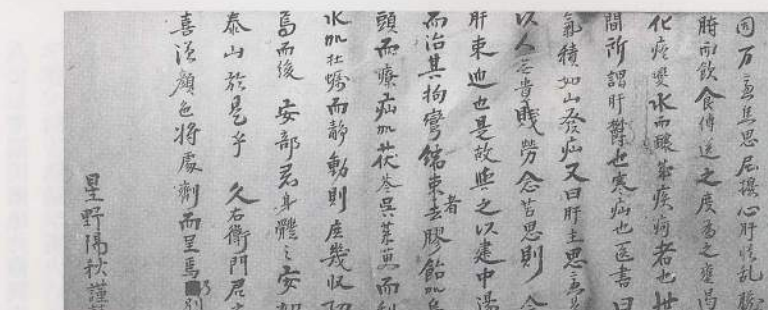 因万慮焦思屈撓心肝慌乱
時而飲食傳送之度為之壅
化痰變水而醸華疾痾者也
間所謂肝欝也寒疝也医書曰
氣積如山発疝又曰肝主思慮
以人無貴賤勞念苦思則
肝東也是故與之以建中湯
而治其拘攣錯東者去膠飴加烏
頭而療疝加茯苓呉茱萸而
水加牡蠣而静動則庶幾収
焉而後安部君身體之安
泰山於是乎久右衛門君
喜溢顔色将處劑而呈焉別
星野陽秋謹